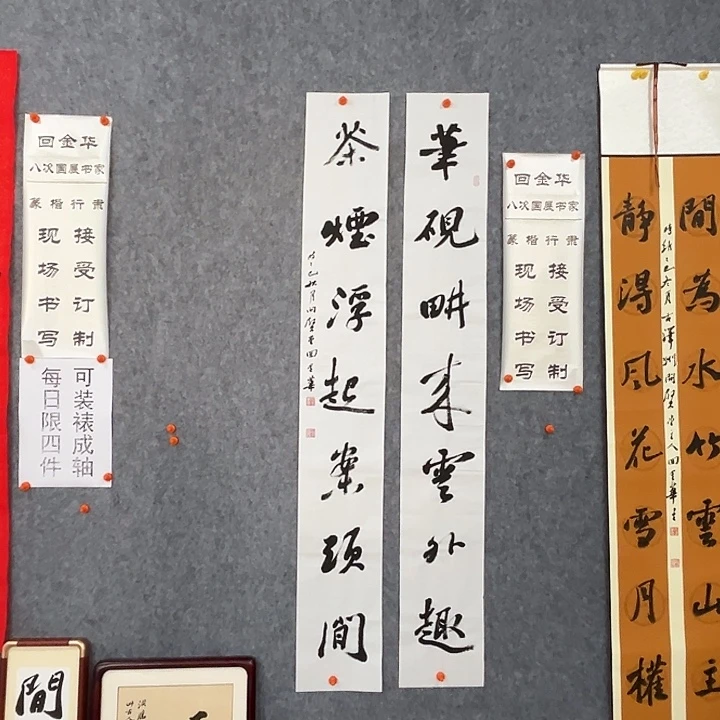 回金华
八次国展书家
篆楷行隶
接受订制
现场书写
可装裱成轴
每日限四件
華硯畊來雲外趣
茶煙浮起案頭間
回金华
八次国展书家
篆楷行隶
接受订制
现场书写
間為水竹雲山主
靜得風花雪月權
間